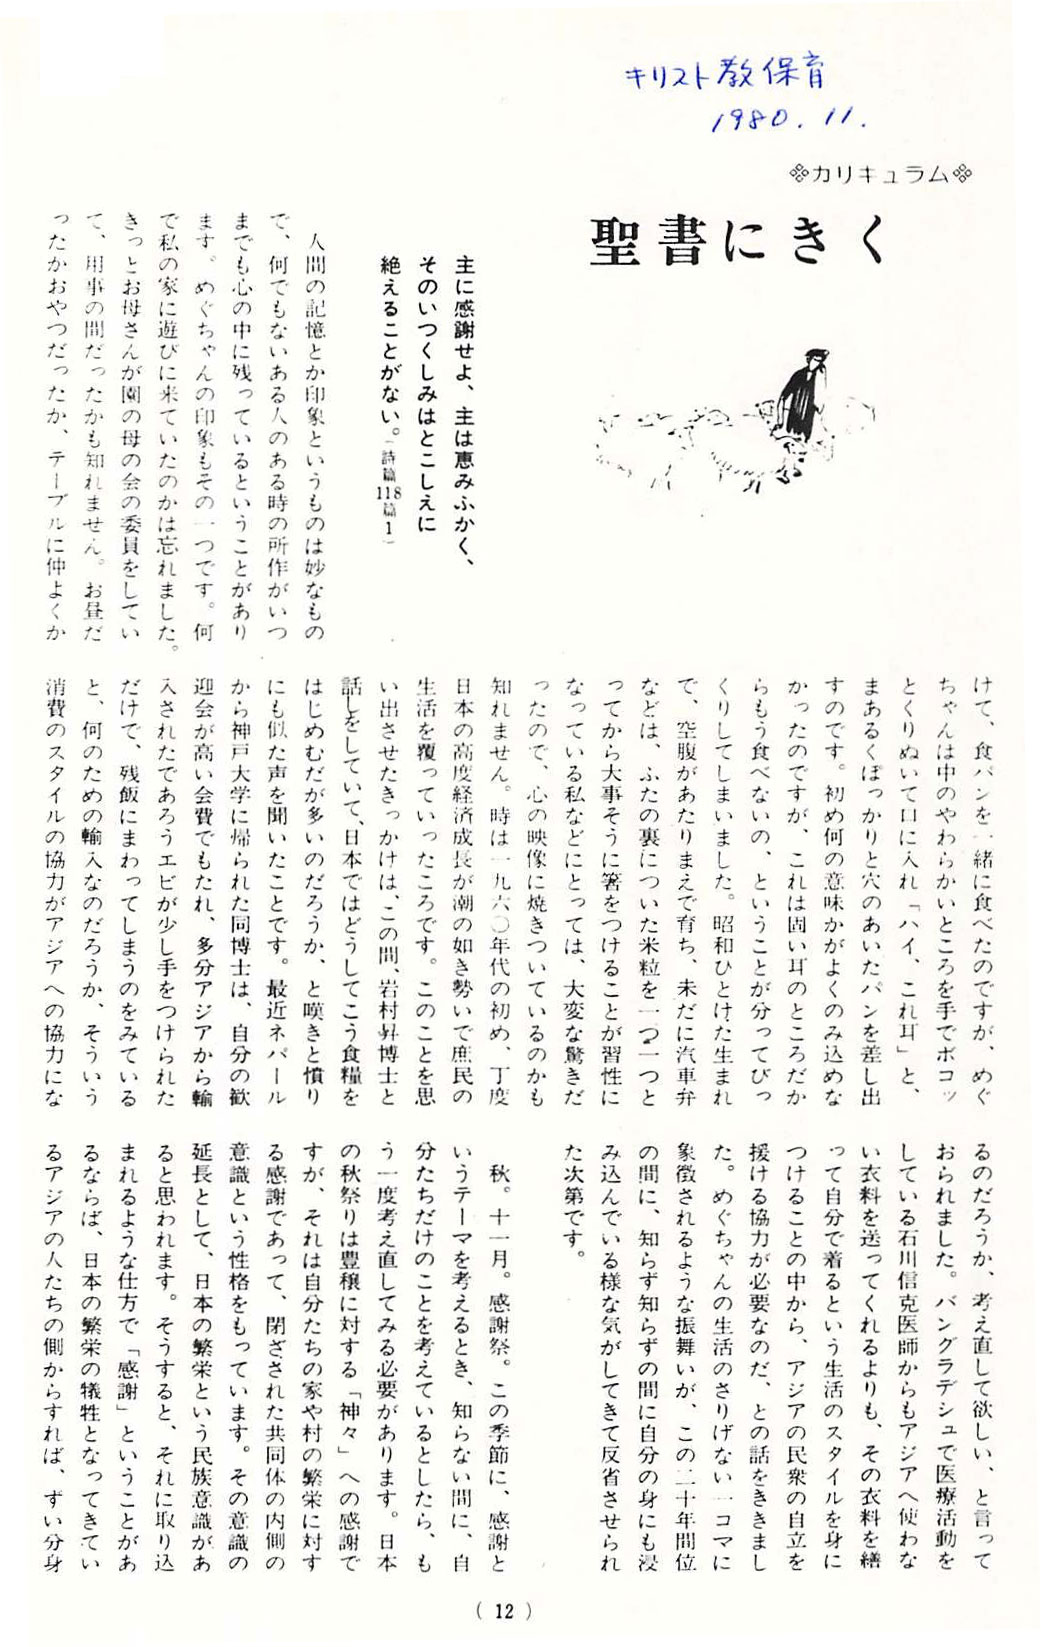 キリスト教保育
1980.11.
※カリキュラム※
聖書にきく
主に感謝せよ、主は恵みふかく、
そのいつくしみはとこしえに
絶えることがない。(詩篇118篇1)
人間の記憶とか印象というものは妙なもの
で、何でもないある人のある時の所作がいつ
までも心の中に残っているということがあり
ます。めぐちゃんの印象もその一つです。何
で私の家に遊びに来ていたのかは忘れました。
きっとお母さんが園の母の会の委員をしてい
て、用事の間だったかも知れません。お昼だ
ったかおやつだったか、テーブルに仲よくか
けて、食パンを一緒に食べたのですが、めぐ
ちゃんは中のやわらかいところを手でボコッ
とくりぬいて口に入れ「ハイ、これ耳」と、
まあるくぽっかりと穴のあいたパンを差し出
すのです。初め何の意味かがよくのみ込めな
かったのですが、これは固い耳のところだか
らもう食べないの、ということが分ってびっ
くりしてしまいました。昭和ひとけた生まれ
で、空腹があたりまえで育ち、未だに汽車弁
などは、ふたの裏についた米粒を一つ一つと
ってから大事そうに箸をつけることが習性に
なっている私などにとっては、大変な驚きだ
ったので、心の映像に焼きついているのかも
知れません。時は一九六〇年代の初め、丁度
日本の高度経済成長が潮の如き勢いで庶民の
生活を覆っていったころです。このことを思
い出させたきっかけは、この間、岩村昇博士と
話しをしていて、日本ではどうしてこう食糧を
はじめむだが多いのだろうか、と嘆きと憤り
にも似た声を聞いたことです。最近ネパール
から神戸大学に帰られた同博士は、自分の歓
迎会が高い会費でもたれ、多分アジアから輸
入されたであろうエビが少し手をつけられた
だけで、残飯にまわってしまうのをみている
と、何のための輸入なのだろうか、そういう
消費のスタイルの協力がアジアへの協力にな
るのだろうか、考え直して欲しい、と言って
おられました。バングラデシュで医療活動を
している石川信克医師からもアジアへ使わな
い衣料を送ってくれるよりも、その衣料を繕
って自分で着るという生活のスタイルを身に
つけることの中から、アジアの民衆の自立を
援ける協力が必要なのだ、との話をききまし
た。めぐちゃんの生活のさりげない一コマに
象徴されるような振舞いが、この二十年間位
の間に、知らず知らずの間に自分の身にも浸
み込んでいる様な気がしてきて反省させられ
た次第です。
秋。十一月。感謝祭。この季節に、感謝と
いうテーマを考えるとき、知らない間に、自
分たちだけのことを考えているとしたら、も
う一度考え直してみる必要があります。日本
の秋祭りは豊穣に対する「神々」への感謝で
すが、それは自分たちの家や村の繁栄に対す
る感謝であって、閉ざされた共同体の内側の
意識という性格をもっています。その意識の
延長として、日本の繁栄という民族意識があ
ると思われます。そうすると、それに取り込
まれるような仕方で「感謝」ということがあ
るならば、日本の繁栄の犠牲となってきてい
るアジアの人たちの側からすれば、ずい分身
(12)